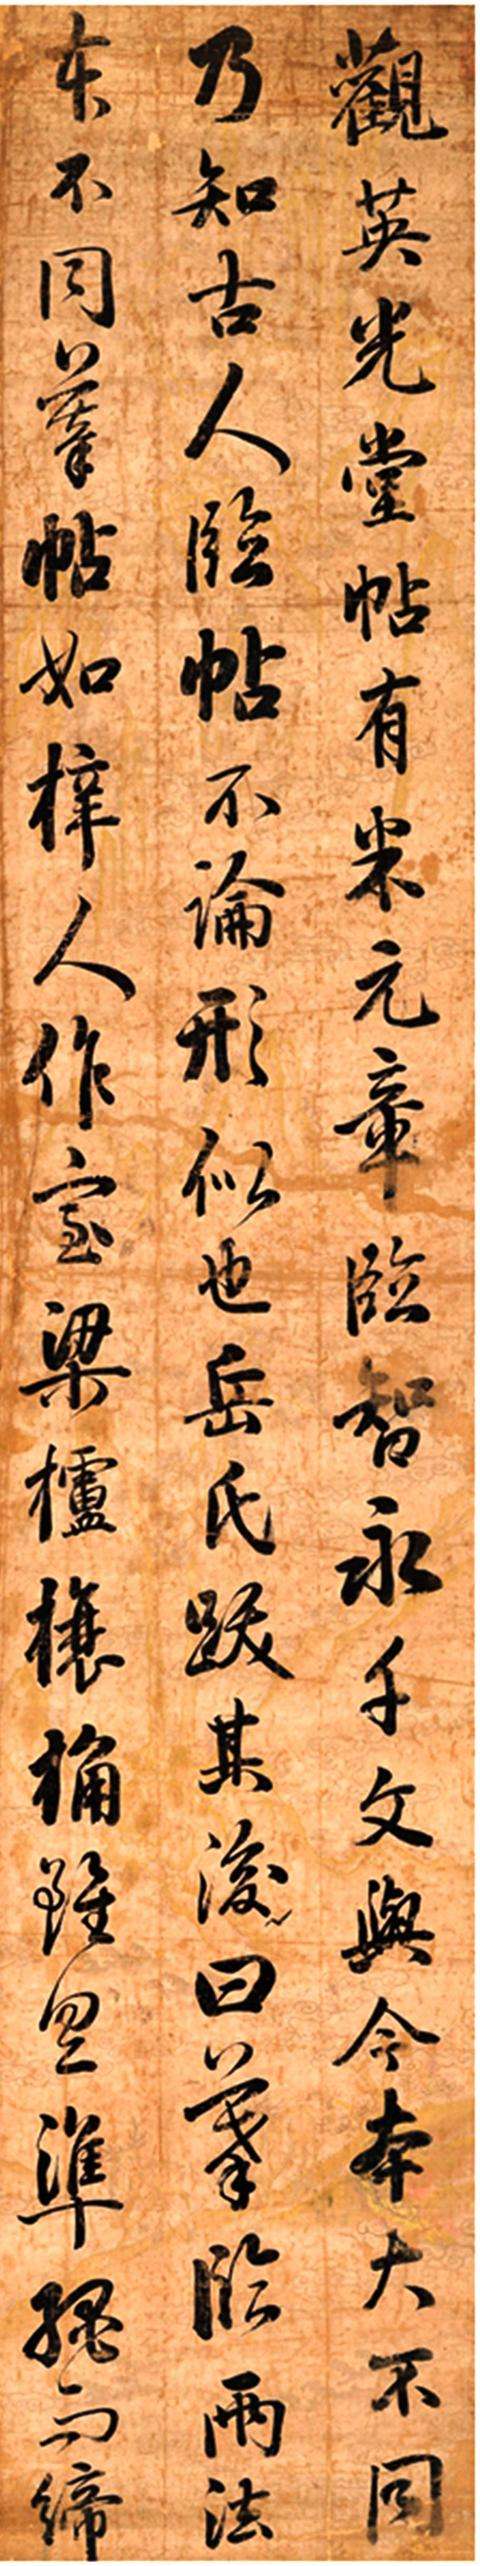 觀英光堂帖有米元章臨智永千文與今本大不同
乃知古人臨帖不論形似也岳氏跋其後曰摹臨兩法
本不同摹帖如梓人作室梁櫨榱桷雖具準繩而締